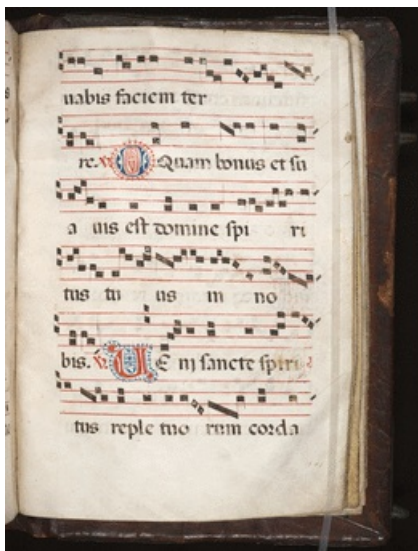 uabis faciem ter
re. ℣. O Quam bonus et su
a uis est domine spi ri
tus tu us in no
bis. ℣. UE ni sancte spiri
tus reple tuo rum corda